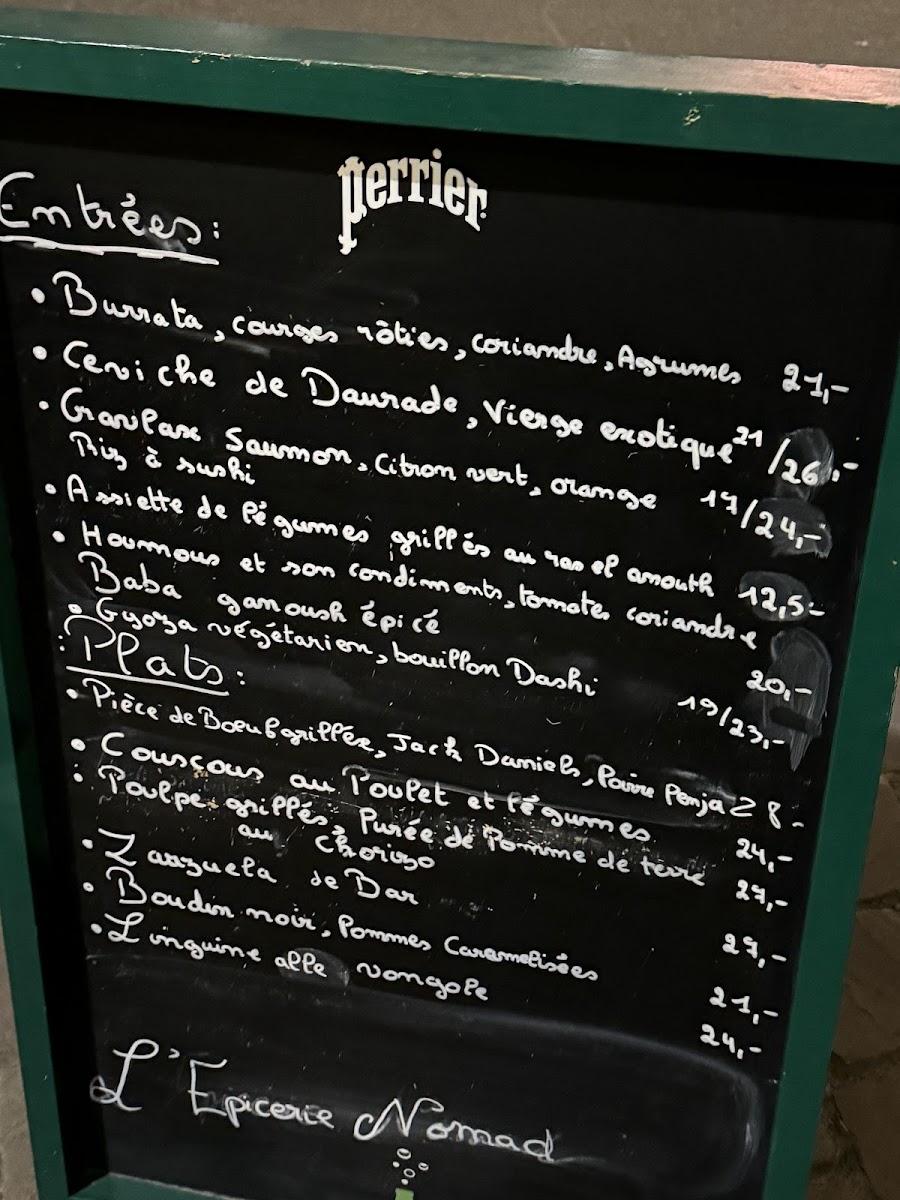 perrier
Entrées:
• Burrata, courges rôties, coriandre, Agrumes 21,-
• Ceviche de Daurade, Vierge exotique 21/26,-
• Gravlax Saumon, Citron vert, orange 17/24,-
Riz à sushi
• Assiette de légumes grillés au ras el anouth 12,5-
• Houmous et son condiments, tomates coriandre
Baba ganoush épicé 20,-
• Gyoza végétarien, bouillon Dashi 19/23,-
: Plats:
• Pièce de Boeuf grillée, Jack Daniels, Poivre Penja 28-
• Cousçous au Poulet et légumes 24,-
: Poulpe grillés, Purée de Pomme de terre 27,-
au Chorizo
• Zarzuela de Bar 27,-
• Boudin noir, Pommes Caramelisées 21,-
• Linguine alle vongole 24,-
L'Epicerie Nomad